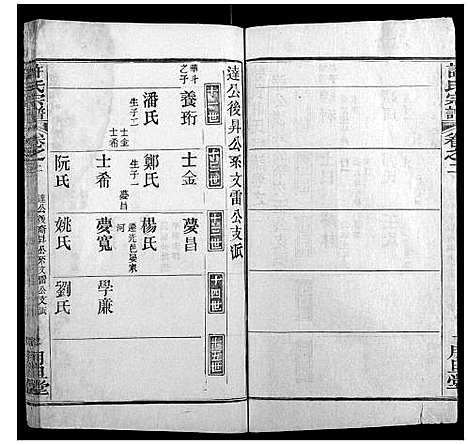 許氏宗譜
卷之二
月旦堂
達公後昇公系文雷公支派
十一世
十二世
十三世
十四世
十五世
華斗之子
養珩
潘氏
生子二
士金
士希
士金
鄭氏
生子一
夢昌
士希
阮氏
夢昌
楊氏
夢寬
遷光邑晏家河
姚氏
學廉
劉氏
許氏宗譜
卷之二
達公後裔昇公系文雷公支派
月旦堂